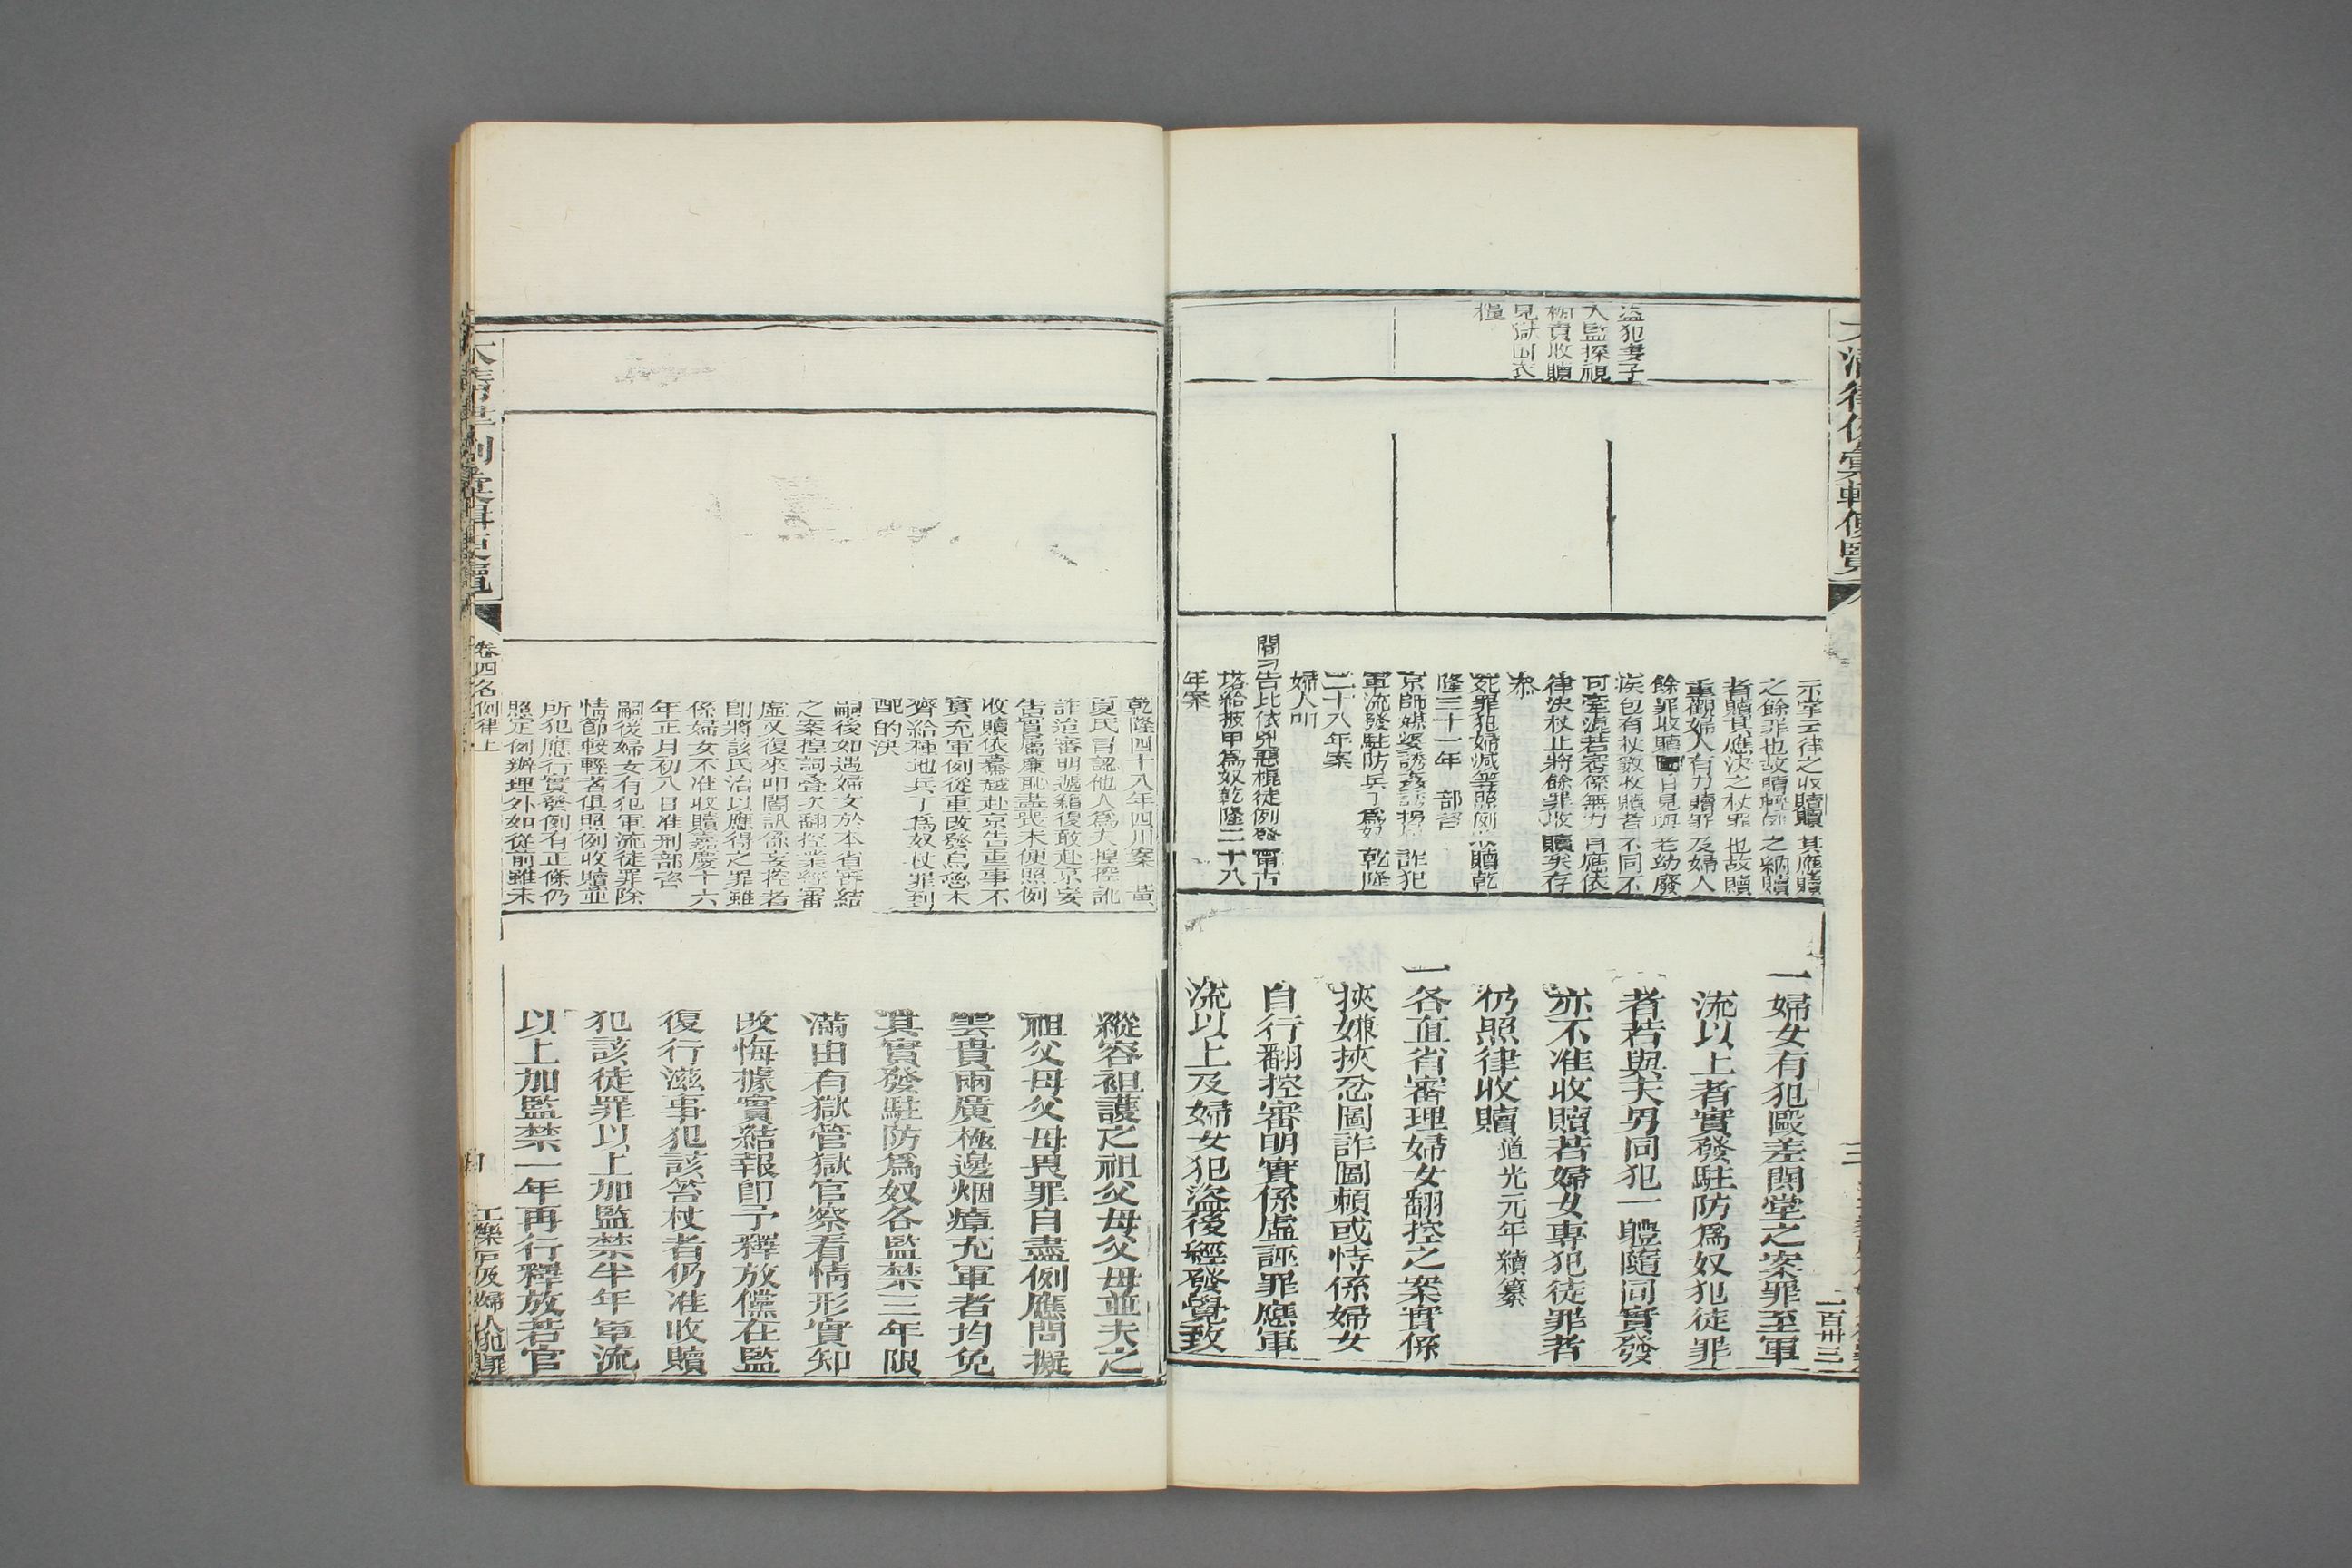 大清律例彙輯便覽
一百卅三
盜犯妻子
入監探視
糧
示掌云律之收贖其應贖
之餘罪也故贖輕例之納贖
者贖其應決之杖罪也故贖
重觀婦人有力贖罪及婦人
餘罪收贖自見與老幼廢
疾包有杖數收贖者不同不
可牽混若審係無力自應依
律決杖止將餘罪收贖矣存
參
死罪犯婦減等照例收贖乾
隆三十一年部咨
京師媒婆誘姦誆拐詐犯
軍流發駐防兵丁爲奴乾隆
二十八年案
婦人叩
閽刁告比依兇惡棍徒例發甯古
塔給披甲爲奴乾隆二十八
年案
一婦女有犯毆差鬨堂之案罪至軍
流以上者實發駐防爲奴犯徒罪
者若與夫男同犯一體隨同實發
亦不准收贖若婦女專犯徒罪者
仍照律收贖道光元年續纂
一各直省審理婦女翻控之案實係
挾嫌挾忿圖詐圖賴或恃係婦女
自行翻控審明實係虛誣罪應軍
流以上及婦女犯盜後經發覺致
乾隆四十八年四川案 黃
夏氏冒認他人爲夫捏控訛
詐治審明遞籍復敢赴京妄
告實屬廉恥盡喪未便照例
收贖依驀越赴京告重事不
實充軍例從重改發烏魯木
齊給種地兵丁爲奴杖罪到
配的決
嗣後如遇婦女於本省審結
之案捏詞疊次翻控業經審
虛又復來叩閽訊係妄控者
卽將該氏治以應得之罪雖
係婦女不准收贖嘉慶十六
年正月初八日准刑部咨
嗣後婦女有犯軍流徒罪除
情節較輕者俱照例收贖並
所犯應行實發例有正條仍
照定例辦理外如從前雖未
縱容袒護之祖父母父母並夫之
祖父母父母畏罪自盡例應問擬
雲貴兩廣極邊烟瘴充軍者均免
其實發駐防爲奴各監禁三年限
滿由有獄管獄官察看情形實知
改悔據實結報卽予釋放儻在監
復行滋事犯該笞杖者仍准收贖
犯該徒罪以上加監禁半年軍流
以上加監禁一年再行釋放若官
大清律例彙輯便覽
卷四名例律上
工樂戶及婦人犯罪